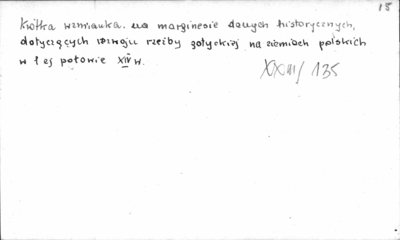 15
Krótka wzmianka na marginesie danych historycznych,
dotyczących rozwoju rzeźby gotyckiej na ziemiach polskich
w 1 ej połowie XIV w.
XXIII/135